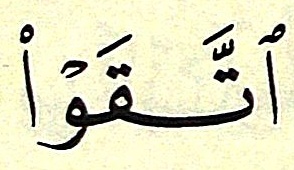 ٱتَّقَوۡا۟